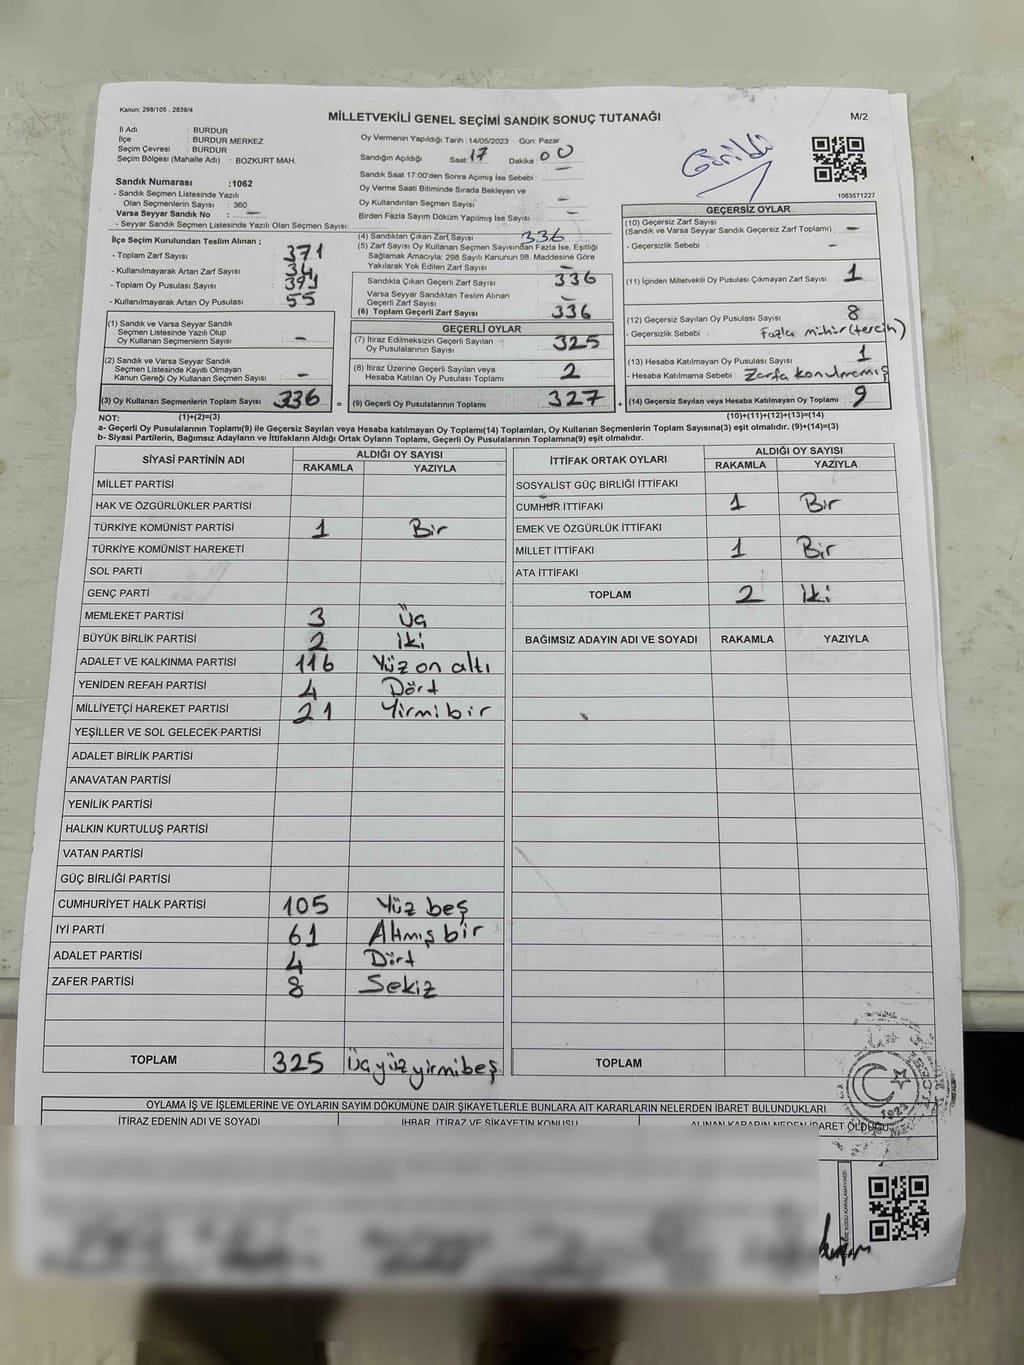 Kanun: 298/105 , 2839/4
MİLLETVEKİLİ GENEL SEÇİMİ SANDIK SONUÇ TUTANAĞI
M/2
İl Adı : BURDUR
İlçe : BURDUR MERKEZ
Seçim Çevresi : BURDUR
Seçim Bölgesi (Mahalle Adı) : BOZKURT MAH.
Sandık Numarası :1062
- Sandık Seçmen Listesinde Yazılı
Olan Seçmenlerin Sayısı : 360
Varsa Seyyar Sandık No : —
- Seyyar Sandık Seçmen Listesinde Yazılı Olan Seçmen Sayısı:
Oy Vermenin Yapıldığı Tarih :14/05/2023 Gün: Pazar
Sandığın Açıldığı Saat 17 Dakika 00
Sandık Saat 17:00'den Sonra Açımış İse Sebebi : —
Oy Verme Saati Bitiminde Sırada Bekleyen ve
Oy Kullandırılan Seçmen Sayısı —
Birden Fazla Sayım Döküm Yapılmış İse Sayısı : —
Görüldü
1083571227
İlçe Seçim Kurulundan Teslim Alınan ;
- Toplam Zarf Sayısı 371
- Kullanılmayarak Artan Zarf Sayısı 34
- Toplam Oy Pusulası Sayısı 391
- Kullanılmayarak Artan Oy Pusulası 55
(1) Sandık ve Varsa Seyyar Sandık
Seçmen Listesinde Yazılı Olup
Oy Kullanan Seçmenlerin Sayısı : —
(2) Sandık ve Varsa Seyyar Sandık
Seçmen Listesinde Kayıtlı Olmayan
Kanun Gereği Oy Kullanan Seçmen Sayısı : —
(3) Oy Kullanan Seçmenlerin Toplam Sayısı 336 =
(4) Sandıktan Çıkan Zarf Sayısı 336
(5) Zarf Sayısı Oy Kullanan Seçmen Sayısından Fazla İse, Eşitliği
Sağlamak Amacıyla; 298 Sayılı Kanunun 98. Maddesine Göre
Yakılarak Yok Edilen Zarf Sayısı : —
Sandıkta Çıkan Geçerli Zarf Sayısı 336
Varsa Seyyar Sandıktan Teslim Alınan
Geçerli Zarf Sayısı —
(6) Toplam Geçerli Zarf Sayısı 336
GEÇERLİ OYLAR
(7) İtiraz Edilmeksizin Geçerli Sayılan
Oy Pusulalarının Sayısı 325
(8) İtiraz Üzerine Geçerli Sayılan veya
Hesaba Katılan Oy Pusulası Toplamı 2
(9) Geçerli Oy Pusulalarının Toplamı 327 +
GEÇERSİZ OYLAR
(10) Geçersiz Zarf Sayısı
(Sandık ve Varsa Seyyar Sandık Geçersiz Zarf Toplamı) : —
- Geçersizlik Sebebi : —
(11) İçinden Milletvekili Oy Pusulası Çıkmayan Zarf Sayısı 1
(12) Geçersiz Sayılan Oy Pusulası Sayısı 8
- Geçersizlik Sebebi : Fazla mühür (tercih)
(13) Hesaba Katılmayan Oy Pusulası Sayısı 1
- Hesaba Katılmama Sebebi : Zarfa konulmamış
(14) Geçersiz Sayılan veya Hesaba Katılmayan Oy Toplamı 9
NOT: (1)+(2)=(3)
(10)+(11)+(12)+(13)=(14)
a- Geçerli Oy Pusulaları Toplamı(9) ile Geçersiz Sayılan veya Hesaba katılmayan Oy Toplamı(14) Toplamları, Oy Kullanan Seçmenlerin Toplam Sayısına(3) eşit olmalıdır. (9)+(14)=(3)
b- Siyasi Partilerin, Bağımsız Adayların ve İttifakların Aldığı Ortak Oyların Toplamı, Geçerli Oy Pusulalarının Toplamına(9) eşit olmalıdır.
SİYASİ PARTİNİN ADI ALDIĞI OY SAYISI
RAKAMLA YAZIYLA
MİLLET PARTİSİ
HAK VE ÖZGÜRLÜKLER PARTİSİ
TÜRKİYE KOMÜNİST PARTİSİ 1 Bir
TÜRKİYE KOMÜNİST HAREKETİ
SOL PARTİ
GENÇ PARTİ
MEMLEKET PARTİSİ 3 Üç
BÜYÜK BİRLİK PARTİSİ 2 İki
ADALET VE KALKINMA PARTİSİ 116 Yüz on altı
YENİDEN REFAH PARTİSİ 4 Dört
MİLLİYETÇİ HAREKET PARTİSİ 21 Yirmi bir
YEŞİLLER VE SOL GELECEK PARTİSİ
ADALET BİRLİK PARTİSİ
ANAVATAN PARTİSİ
YENİLİK PARTİSİ
HALKIN KURTULUŞ PARTİSİ
VATAN PARTİSİ
GÜÇ BİRLİĞİ PARTİSİ
CUMHURİYET HALK PARTİSİ 105 Yüz beş
İYİ PARTİ 61 Altmış bir
ADALET PARTİSİ 4 Dört
ZAFER PARTİSİ 8 Sekiz
TOPLAM 325 Üçyüz yirmibeş
İTTİFAK ORTAK OYLARI ALDIĞI OY SAYISI
RAKAMLA YAZIYLA
SOSYALİST GÜÇ BİRLİĞİ İTTİFAKI
CUMHUR İTTİFAKI 1 Bir
EMEK VE ÖZGÜRLÜK İTTİFAKI
MİLLET İTTİFAKI 1 Bir
ATA İTTİFAKI
TOPLAM 2 İki
BAĞIMSIZ ADAYIN ADI VE SOYADI RAKAMLA YAZIYLA
TOPLAM
1923
OYLAMA İŞ VE İŞLEMLERİNE VE OYLARIN SAYIM DÖKÜMÜNE DAİR ŞİKAYETLERLE BUNLARA AİT KARARLARIN NELERDEN İBARET BULUNDUKLARI
İTİRAZ EDENİN ADI VE SOYADI İHBAR, İTİRAZ VE ŞİKAYETİN KONUSU ALINAN KARARIN NEDEN İBARET OLDUĞU